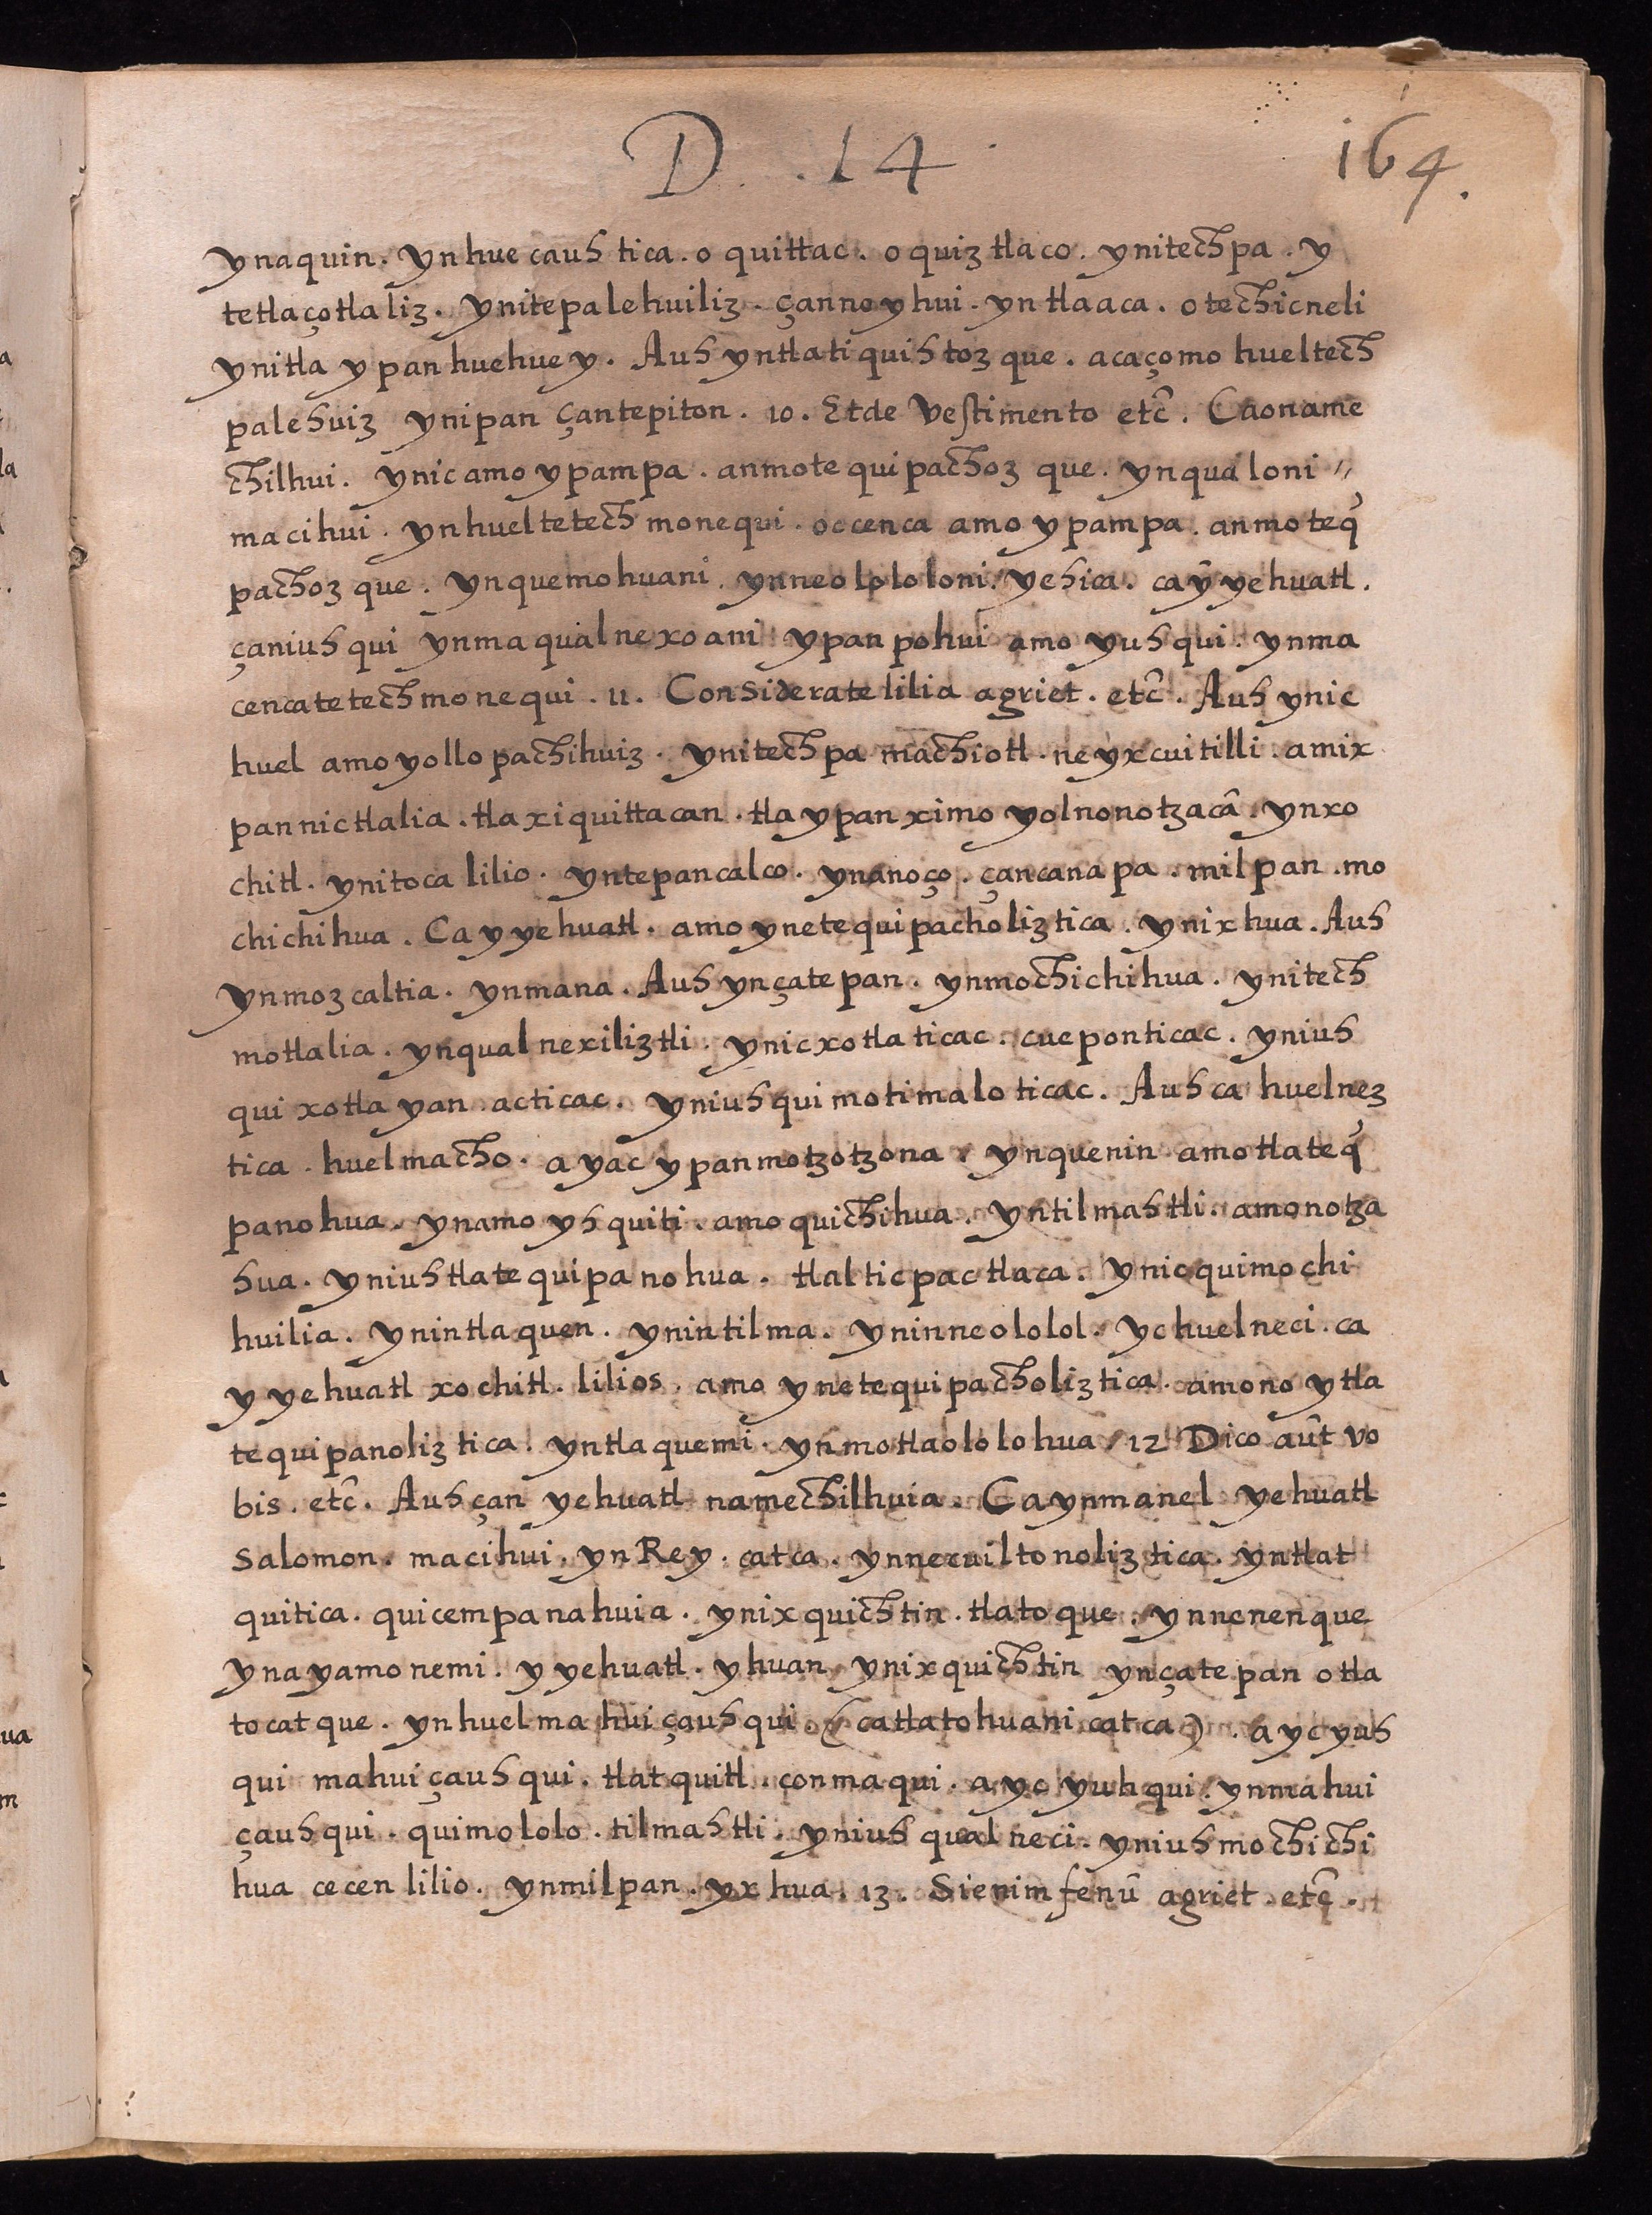 D. .14
164.
ynaquin. ynhuecauhtica. o quittac. oquiztlaco. ynitechpa. y
tetlaçotlaliz. ynitepalehuiliz. çannoyhui. yntlaaca. otechicneli
ynitla ypanhuehuey. Auh yntlatiquihtozque. acaçomo hueltech
palehuiz ynipan çantepiton. 10. Etde Vestimento etc̃. Caoname
chilhui. ynicamo ypampa. anmotequipachozque. ynqualoni〃
macihui. ynhueltetech monequi. occenca amo ypampa. anmoteq̃
pachozque. ynquemohuani. ynneolololoni. yehica. caỹyehuatl.
çaniuhqui ynmaqualnexoani ypanpohui amo yuhqui. ynma
cencatetechmonequi. 11. Considerate lilia agriet. etc̃. Auh ynic
huel amoyollopachihuiz. ynitechpa machiotl. neyxcuitilli. amix
pannictlalia. tlaxiquittacan. tlaypanximoyolnonotzacã. ynxo
chitl. ynitoca lilio. yntepancalco. ynanoço. çancanapa. milpan. mo
chichihua. Cayyehuatl. amo ynetequipacholiztica. ynixhua. Auh
ynmozcaltia. ynmana. Auh ynçatepan. ynmochichihua. ynitech
motlalia. ynqualnexiliztli. ynicxotlaticac. cueponticac. yniuh
qui xotlayan acticac. yniuhqui motimaloticac. Auh ca huelnez
tica. huelmacho. ayac ypanmotzotzona. ynquenin amotlateq̃
panohua. ynamo yhquiti. amo quichihua. yntilmahtli. amonotza
hua. yniuhtlatequipanohua. tlalticpactlaca. ynicquimochi
huilia. ynintlaquen. ynintilma. yninneololol. ychuelneci. ca
yyehuatl xochitl. lilios. amo ynetequipacholiztica. amono ytla
tequipanoliztica. yntlaquemi. ynmotlaololohua. 12 Dico aũt vo
bis. etc̃. Auh çan yehuatl namechilhuia. Caynmanel yehuatl
Salomon. macihui. yn Rey. catca. ynnecuiltonoliztica. yntlat
quitica. quicempanahuia. ynixquichtin. tlatoque. ynnenenque
ynayamonemi. yyehuatl. yhuan ynixquichtin ynçatepan otla
tocatque. ynhuelmahuiçauhqui. (catlatohuani catca). aycyuh
qui mahuiçauhqui. tlatquitl. conmaqui. ayc yuhqui. ynmahui
çauhqui. quimololo. tilmahtli. yniuh qualneci. yniuhmochichi
hua cecen lilio. ynmilpan. yxhua. 13. Sienim fenũ agriet. etc̃.